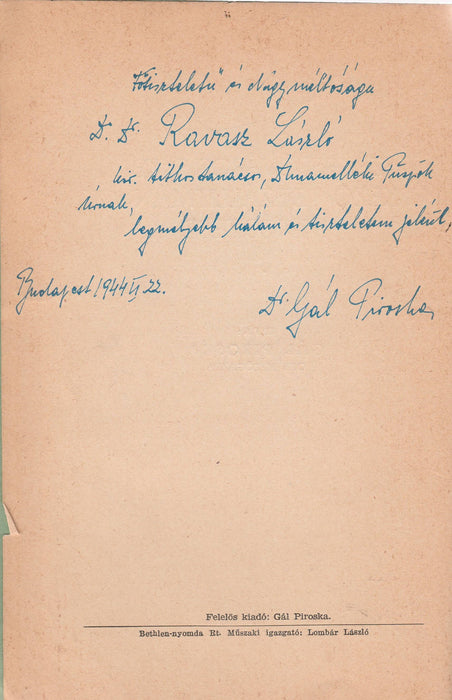 Főtiszteletű és Nagyméltóságu
Dr. Dr. Ravasz László
kir. titkos tanácsos, Dunamelléki Püspök
Úrnak,
legmélyebb hálám és tiszteletem jeléül,
Budapest 1944 VI 22.
Dr Gál Piroska
Felelős kiadó: Gál Piroska.
Bethlen-nyomda Rt. Műszaki igazgató: Lombár László